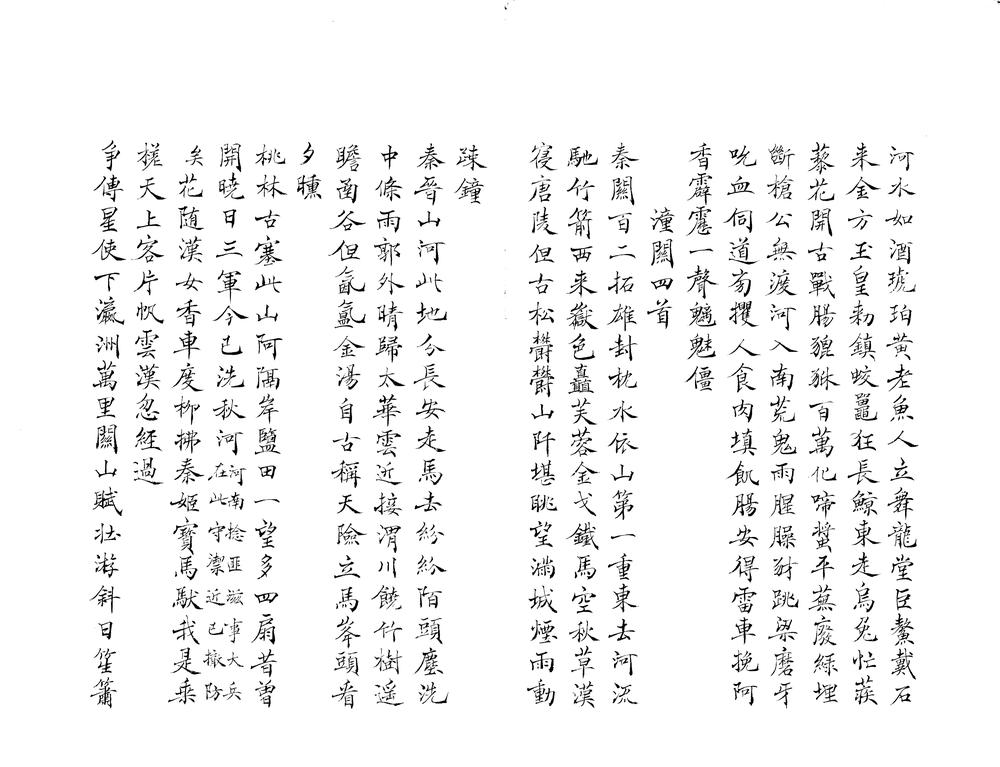 河水如酒琥珀黃老魚人立舞龍堂巨鰲戴石
来金方玉皇勑鎮蛟鼉狂長鯨東走烏兔忙蒺
藜花開古戰腸貔貅百萬化啼螿平蕪廢綠埋
斷槍公無渡河入南荒鬼雨腥臊豺跳梁磨牙
吮血伺道旁攫人食肉填飢腸安得雷車挽阿
香霹靂一聲魑魅僵
潼關四首
秦關百二拓雄封枕水依山第一重東去河流
馳竹箭西来嶽色矗芙蓉金戈鐵馬空秋草漢
寢唐陵但古松欝欝山阡堪眺望滿城煙雨動
疎鐘
秦晉山河此地分長安走馬去紛紛陌頭塵洗
中條雨郭外晴歸太華雲近接渭川饒竹樹遥
瞻函谷但氤氳金湯自古稱天險立馬峯頭看
夕曛
桃林古塞此山阿隔岸鹽田一望多四扇昔曾
開曉日三軍今已洗秋河河南捻匪滋事大兵
在此守禦近已撤防
矣花随漢女香車度柳拂秦姬寶馬馱我是乘
槎天上客片帆雲漢忽經過
爭傳星使下瀛洲萬里關山賦壮游斜日笙簫